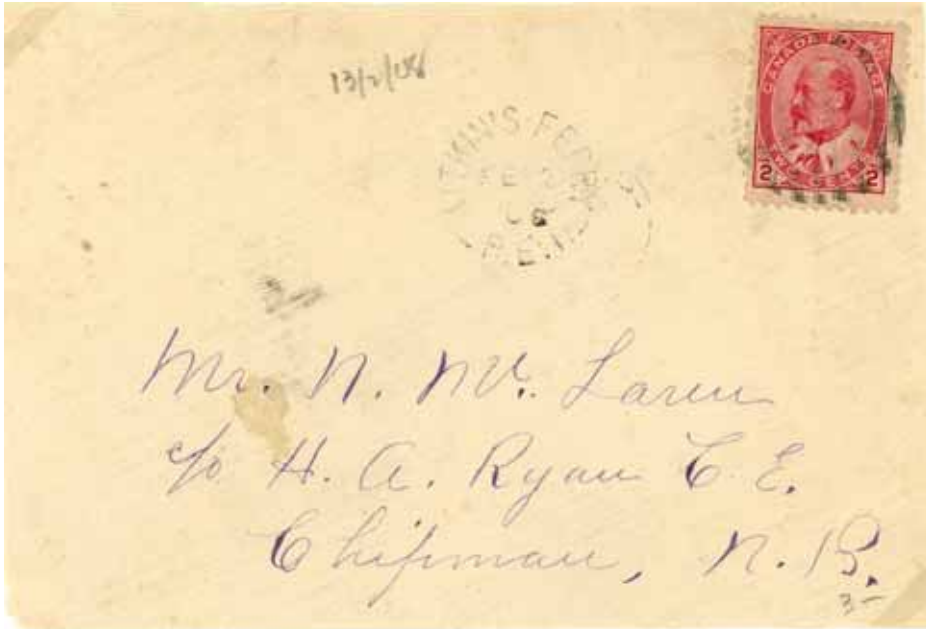 13/2/08
CANADA POSTAGE
2 TWO CENTS 2
FE 2
08
P.E.I.
Mr. N. Mc. Laren
c/o H. A. Ryan C. E.
Chipman, N. B.
3-